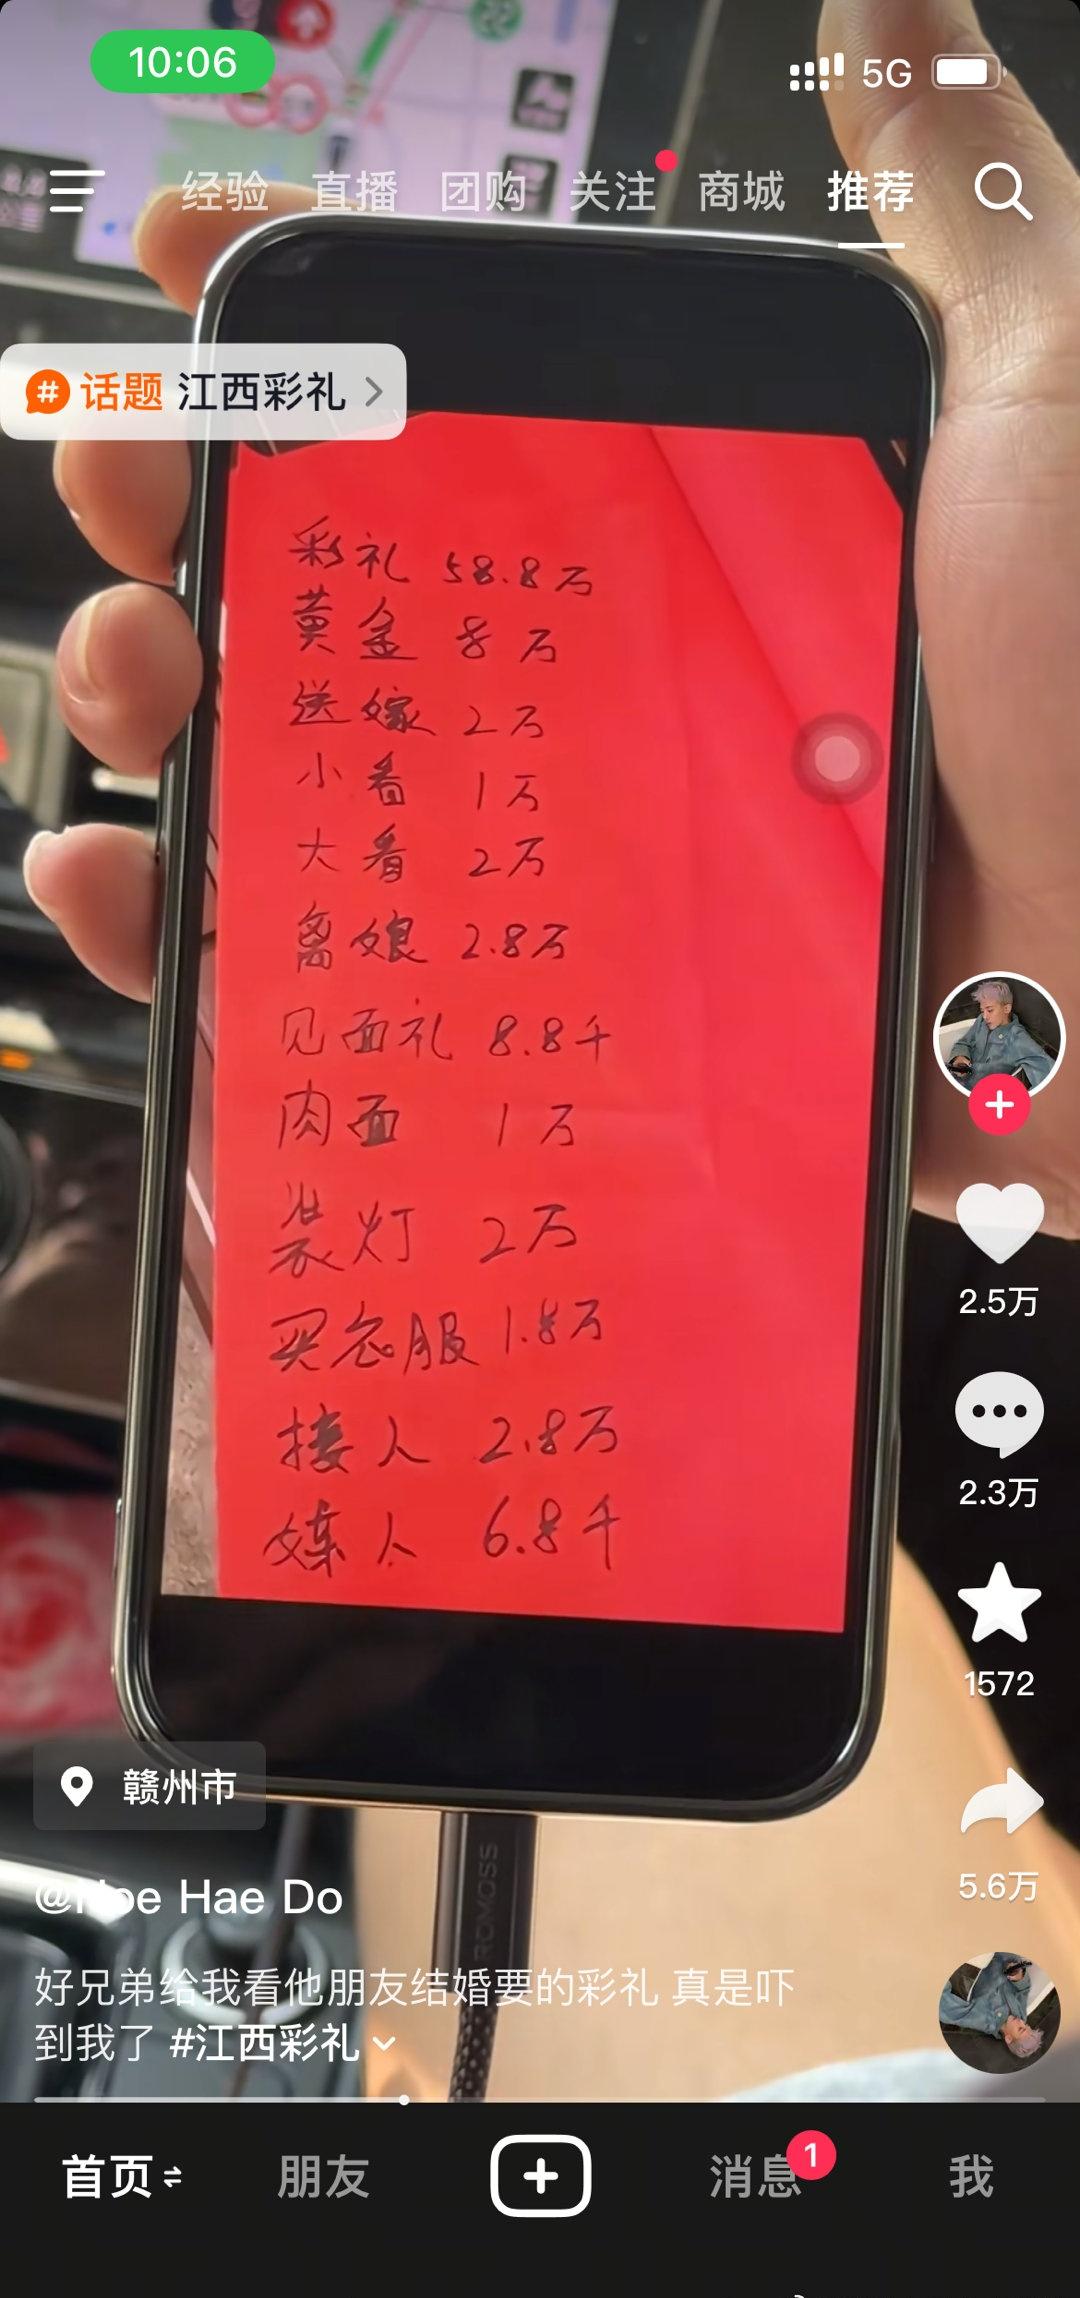 10:06
5G
经验 直播 团购 关注 商城 推荐
话题 江西彩礼
彩礼 58.8万
黄金 8万
送嫁 2万
小看 1万
大看 2万
离娘 2.8万
见面礼 8.8千
肉面 1万
装灯 2万
买衣服 1.8万
接人 2.8万
媒人 6.8千
2.5万
2.3万
1572
5.6万
赣州市
Hae Do
好兄弟给我看他朋友结婚要的彩礼 真是吓
到我了 #江西彩礼
首页 朋友 消息 1 我